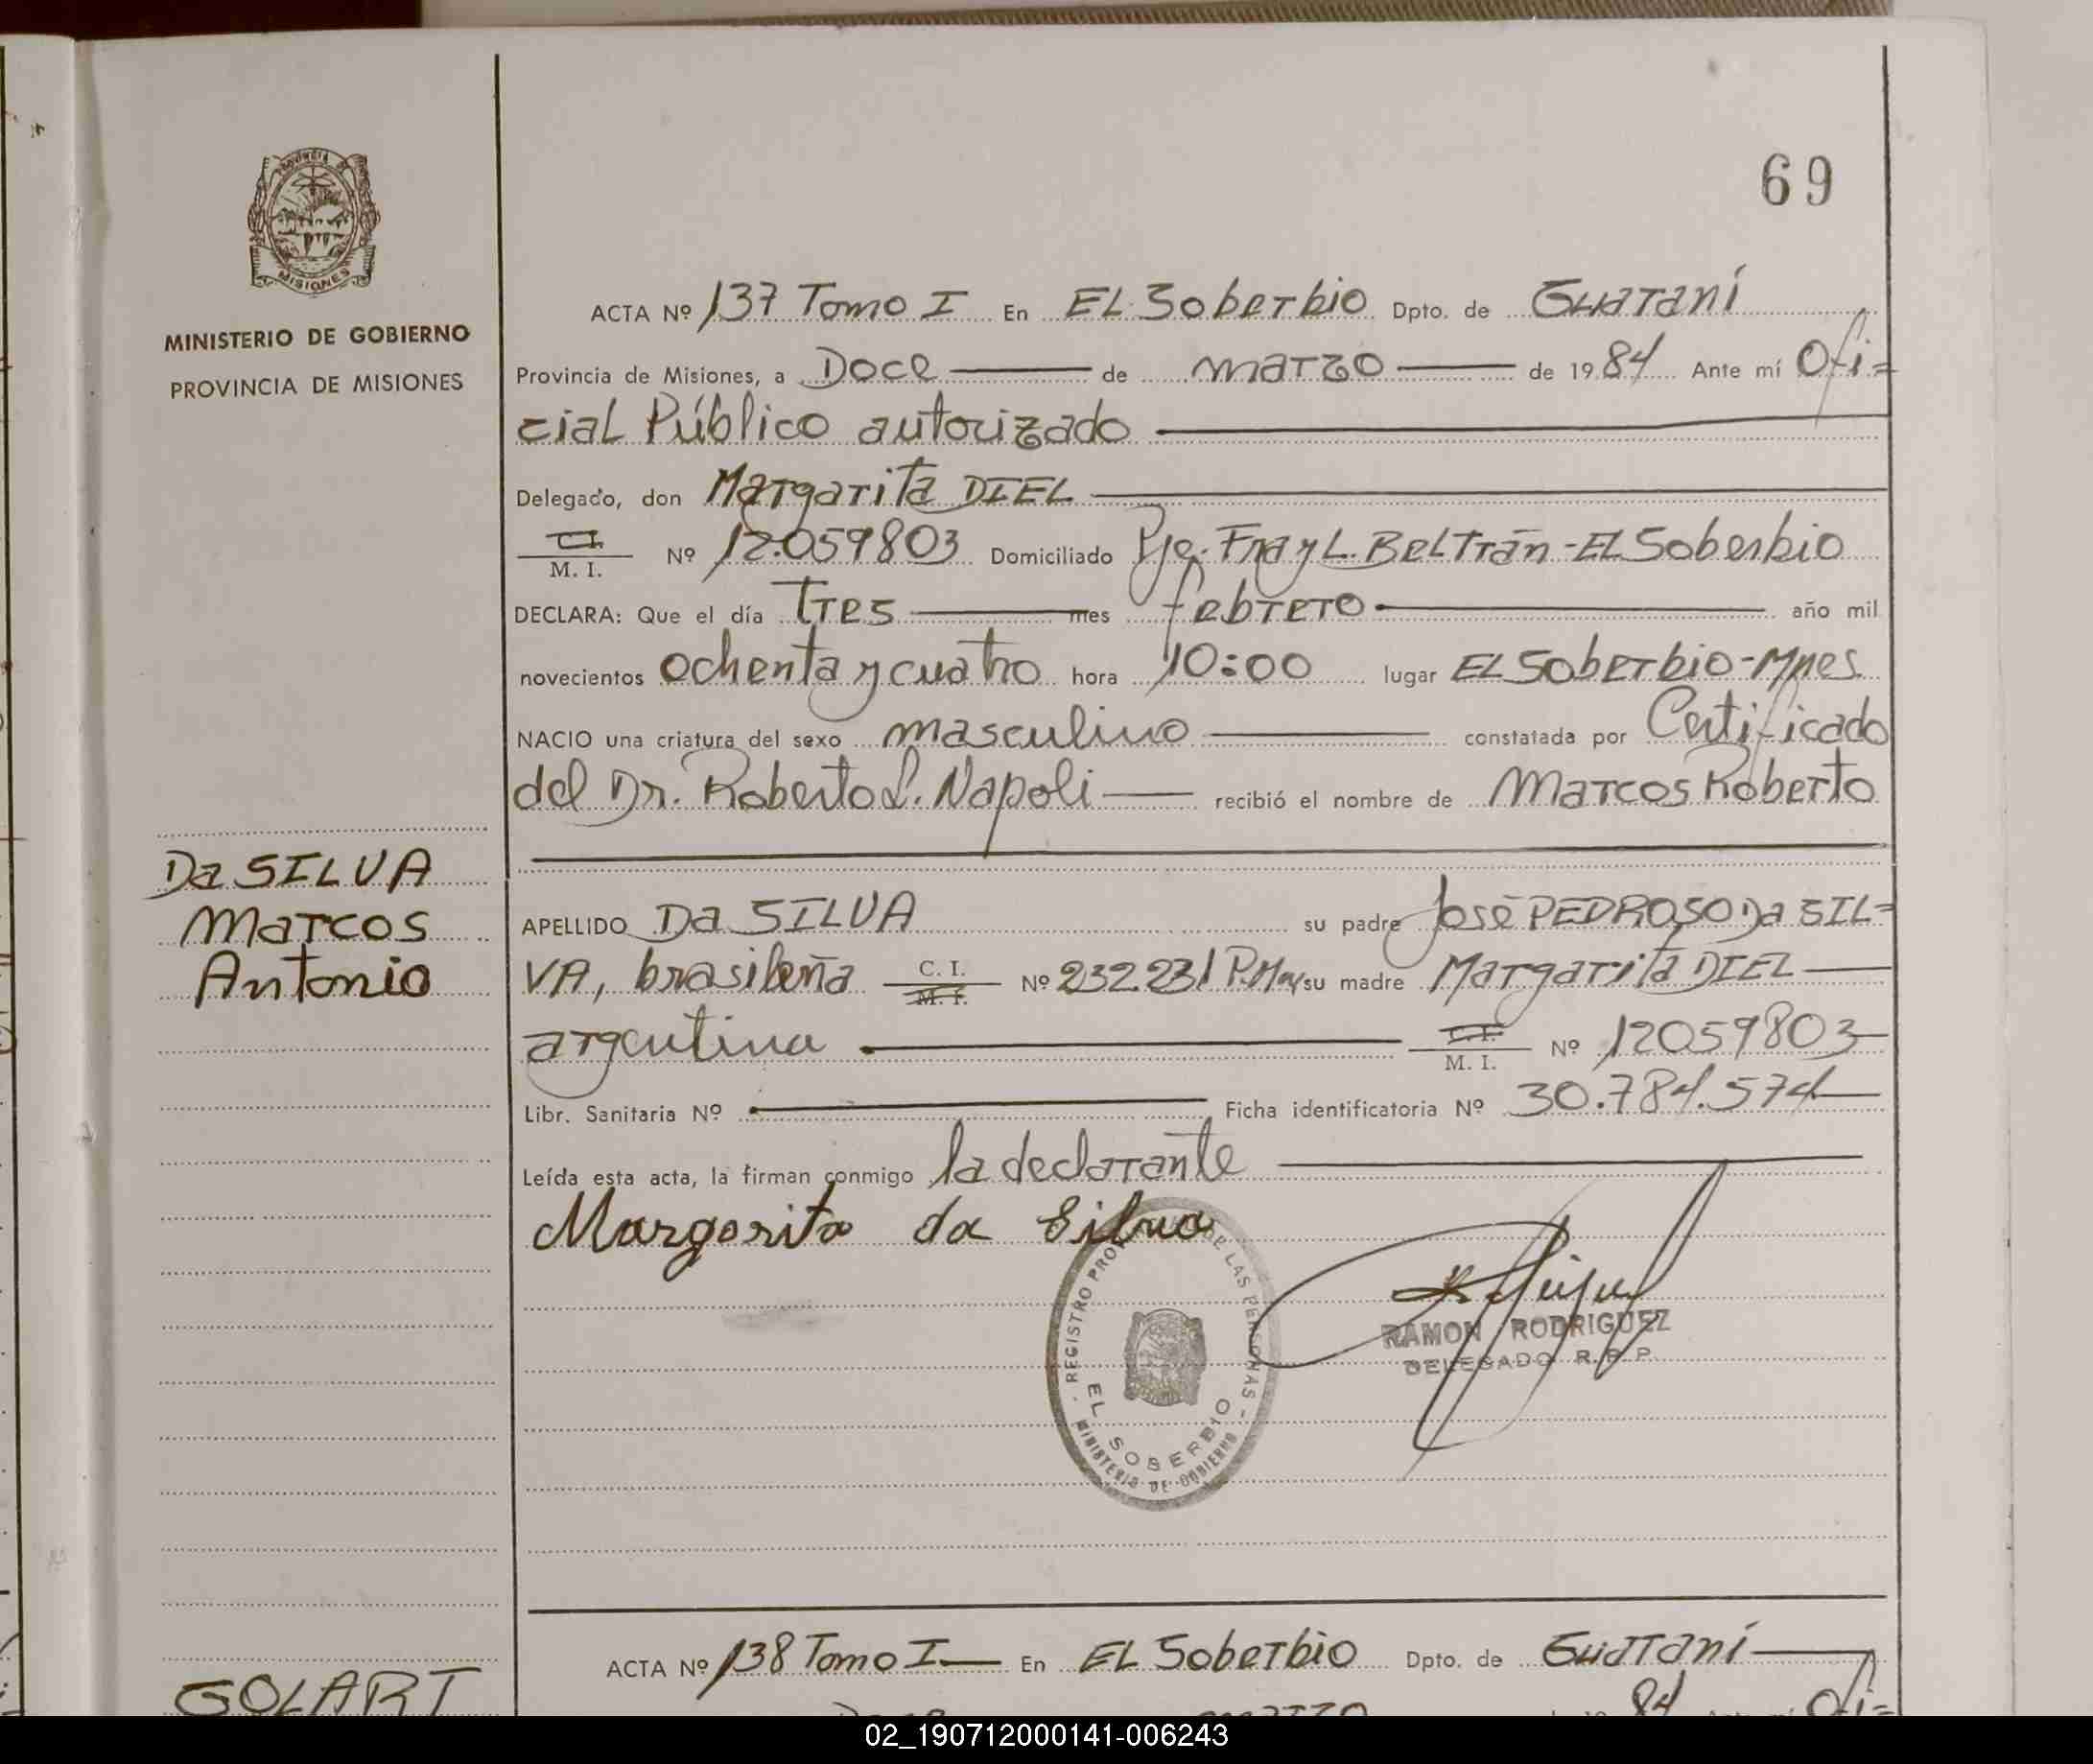 69
PROVINCIA DE
MISIONES
MINISTERIO DE GOBIERNO
PROVINCIA DE MISIONES
Da SILVA
Marcos
Antonio
ACTA Nº 137 Tomo I En EL Soberbio Dpto. de Guaraní
Provincia de Misiones, a Doce de marzo de 1984 Ante mí Ofi=
cial Público autorizado
Delegado, don Margarita DIEL
C.I.
M. I. Nº 12.059803 Domiciliado Pje. Fray L. Beltrán - EL Soberbio
DECLARA: Que el día Tres mes febrero año mil
novecientos ochenta y cuatro hora 10:00 lugar EL Soberbio - Mnes
NACIO una criatura del sexo masculino constatada por Certificado
del Dr. Roberto L. Napoli recibió el nombre de Marcos Roberto
APELLIDO Da SILVA su padre José PEDROSO Da SIL=
VA, brasileña C. I. M. I. Nº 232231 P.Mnes su madre Margarita DIEL
argentina C.I. M. I. Nº 12059803
Libr. Sanitaria Nº Ficha identificatoria Nº 30.784.574
Leída esta acta, la firman conmigo la declarante
Margarita da Silva
REGISTRO PROV DE LAS PERSONAS
EL SOBERBIO
MINISTERIO DE GOBIERNO
RAMON RODRIGUEZ
DELEGADO R.P.P.
ACTA Nº 138 Tomo I En EL Soberbio Dpto. de Guaraní
GOLART
84 Ofi=
02_190712000141-006243